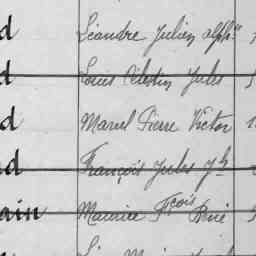 d Léandre Julien Alph.
d Louis Célestin Jules
d Marcel Pierre Victor
d François Jules Jh
ain Maurice Fçois René